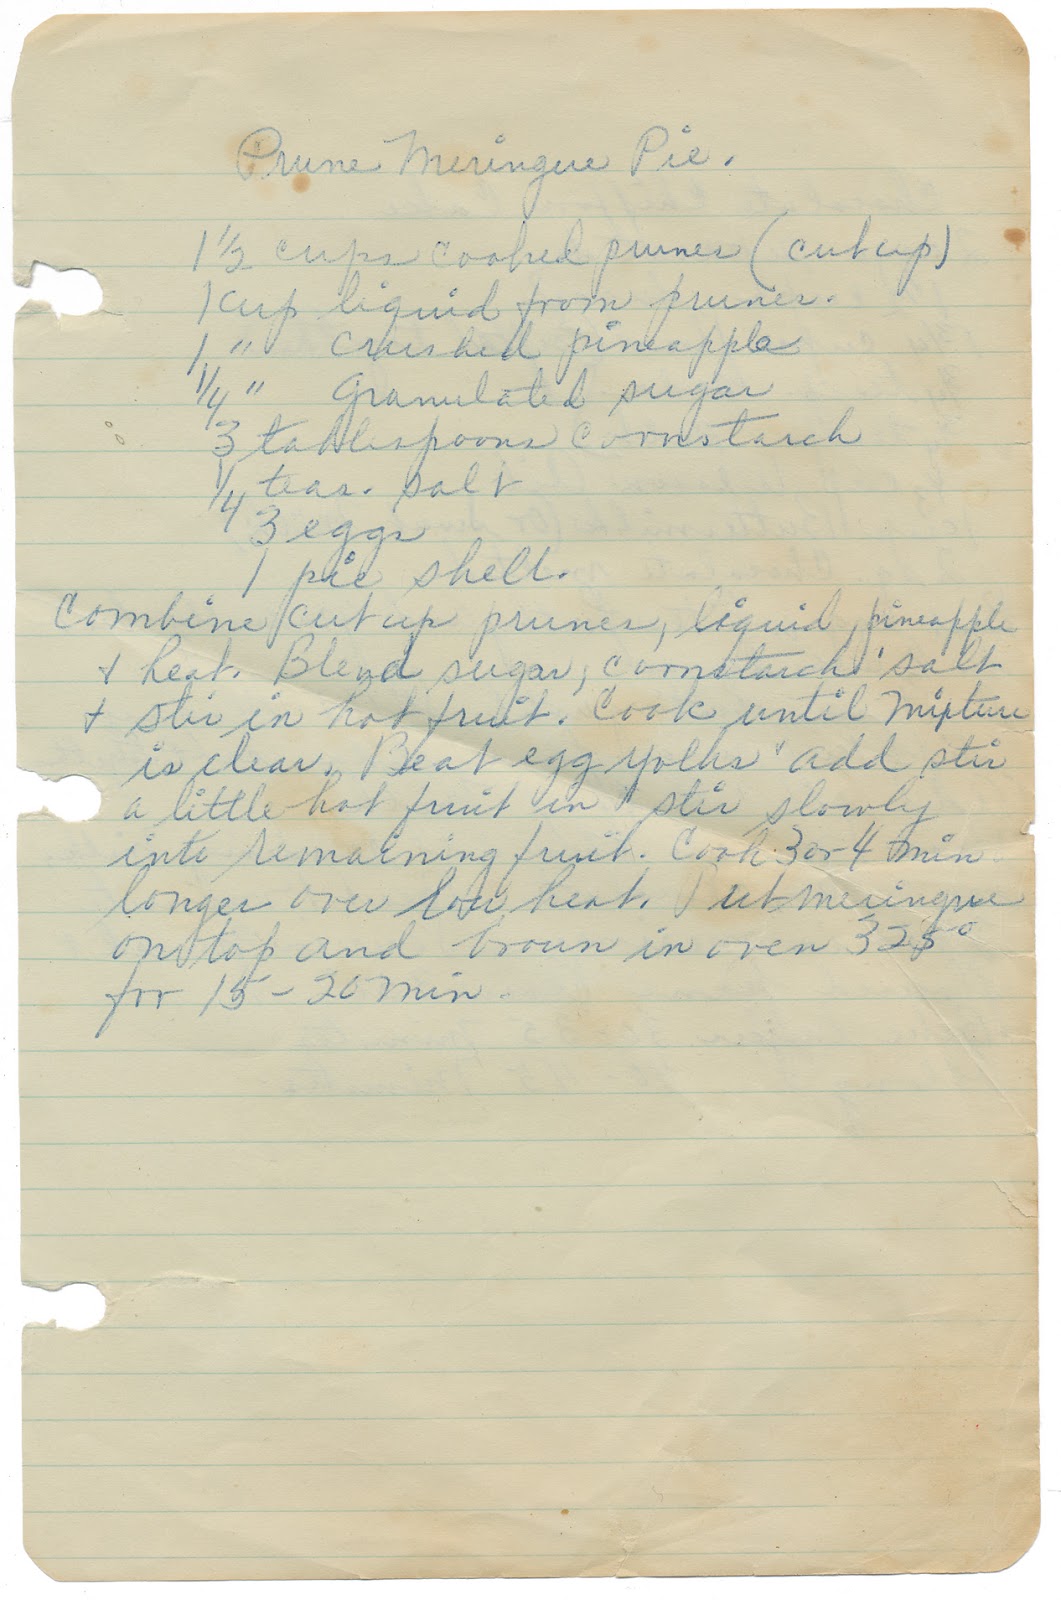 Prune Meringue Pie.
1 1/2 cups cooked prunes (cut up)
1 cup liquid from prunes.
1 " crushed pineapple
1/4 " Granulated sugar
3 tablespoons cornstarch
1/4 teas. salt
3 eggs
1 pie shell.
Combine cut up prunes, liquid, pineapple
+ heat. Blend sugar, cornstarch ' salt
+ stir in hot fruit. Cook until mixture
is clear. Beat egg yolks ' add stir
a little hot fruit in " stir slowly
into remaining fruit. Cook 3 or 4 min
longer over low heat. Put meringue
on top and brown in oven 325°
for 15 - 20 min.